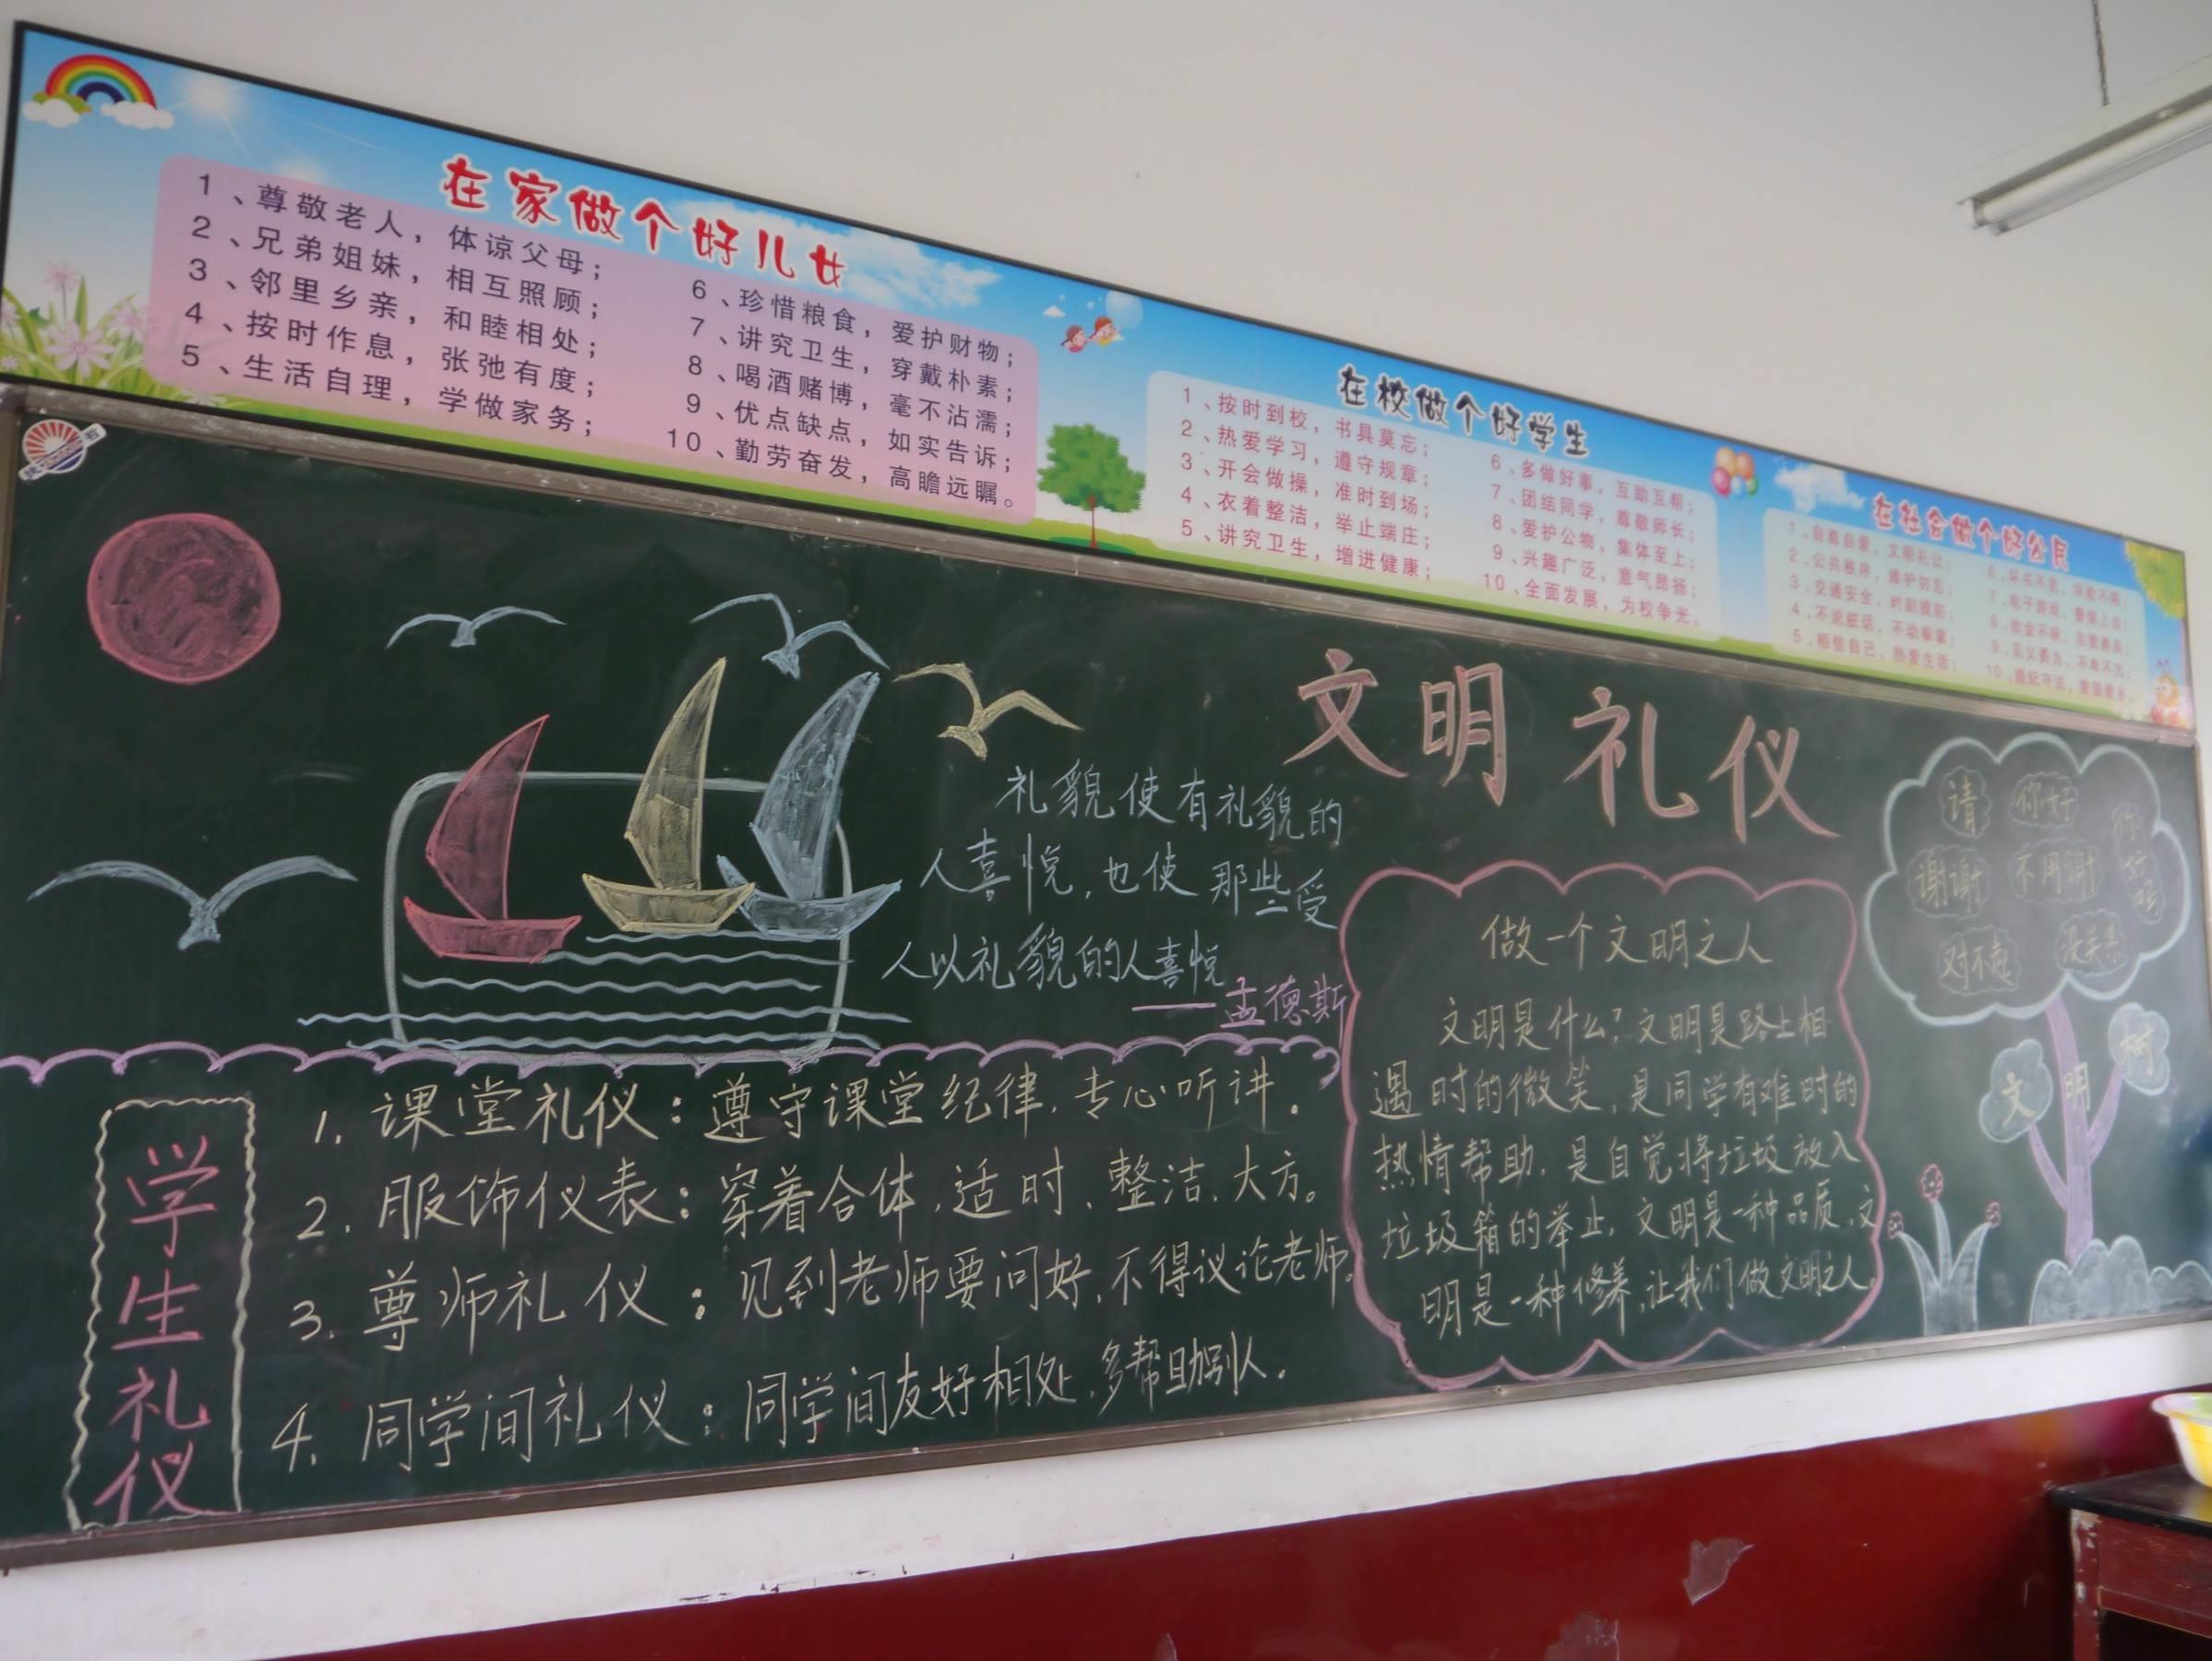 在家做个好儿女
1、尊敬老人，体谅父母；
2、兄弟姐妹，相互照顾；
3、邻里乡亲，和睦相处；
4、按时作息，张弛有度；
5、生活自理，学做家务；
6、珍惜粮食，爱护财物；
7、讲究卫生，穿戴朴素；
8、喝酒赌博，毫不沾濡；
9、优点缺点，如实告诉；
10、勤劳奋发，高瞻远瞩。
在校做个好学生
1、按时到校，书具莫忘；
2、热爱学习，遵守规章；
3、开会做操，准时到场；
4、衣着整洁，举止端庄；
5、讲究卫生，增进健康；
6、多做好事，互助互帮；
7、团结同学，尊敬师长；
8、爱护公物，集体至上；
9、兴趣广泛，意气昂扬；
10、全面发展，为校争光。
在社会做个好公民
1、自尊自爱，文明礼让；
2、公共秩序，维护勿忘；
3、交通安全，时刻提防；
4、不说脏话，不动拳掌；
5、相信自己，热爱生活；
文明礼仪
礼貌使有礼貌的
人喜悦，也使那些受
人以礼貌的人喜悦
——孟德斯
学生礼仪
1. 课堂礼仪：遵守课堂纪律，专心听讲。
2. 服饰仪表：穿着合体、适时、整洁、大方。
3. 尊师礼仪：见到老师要问好，不得议论老师。
4. 同学间礼仪：同学间友好相处，多帮助别人。
做一个文明之人
文明是什么？文明是路上相
遇时的微笑，是同学有难时的
热情帮助，是自觉将垃圾放入
垃圾箱的举止，文明是一种品质，文
明是一种修养，让我们做文明之人。
请
你好
你好吗
谢谢
不用谢
对不起
没关系
文明树